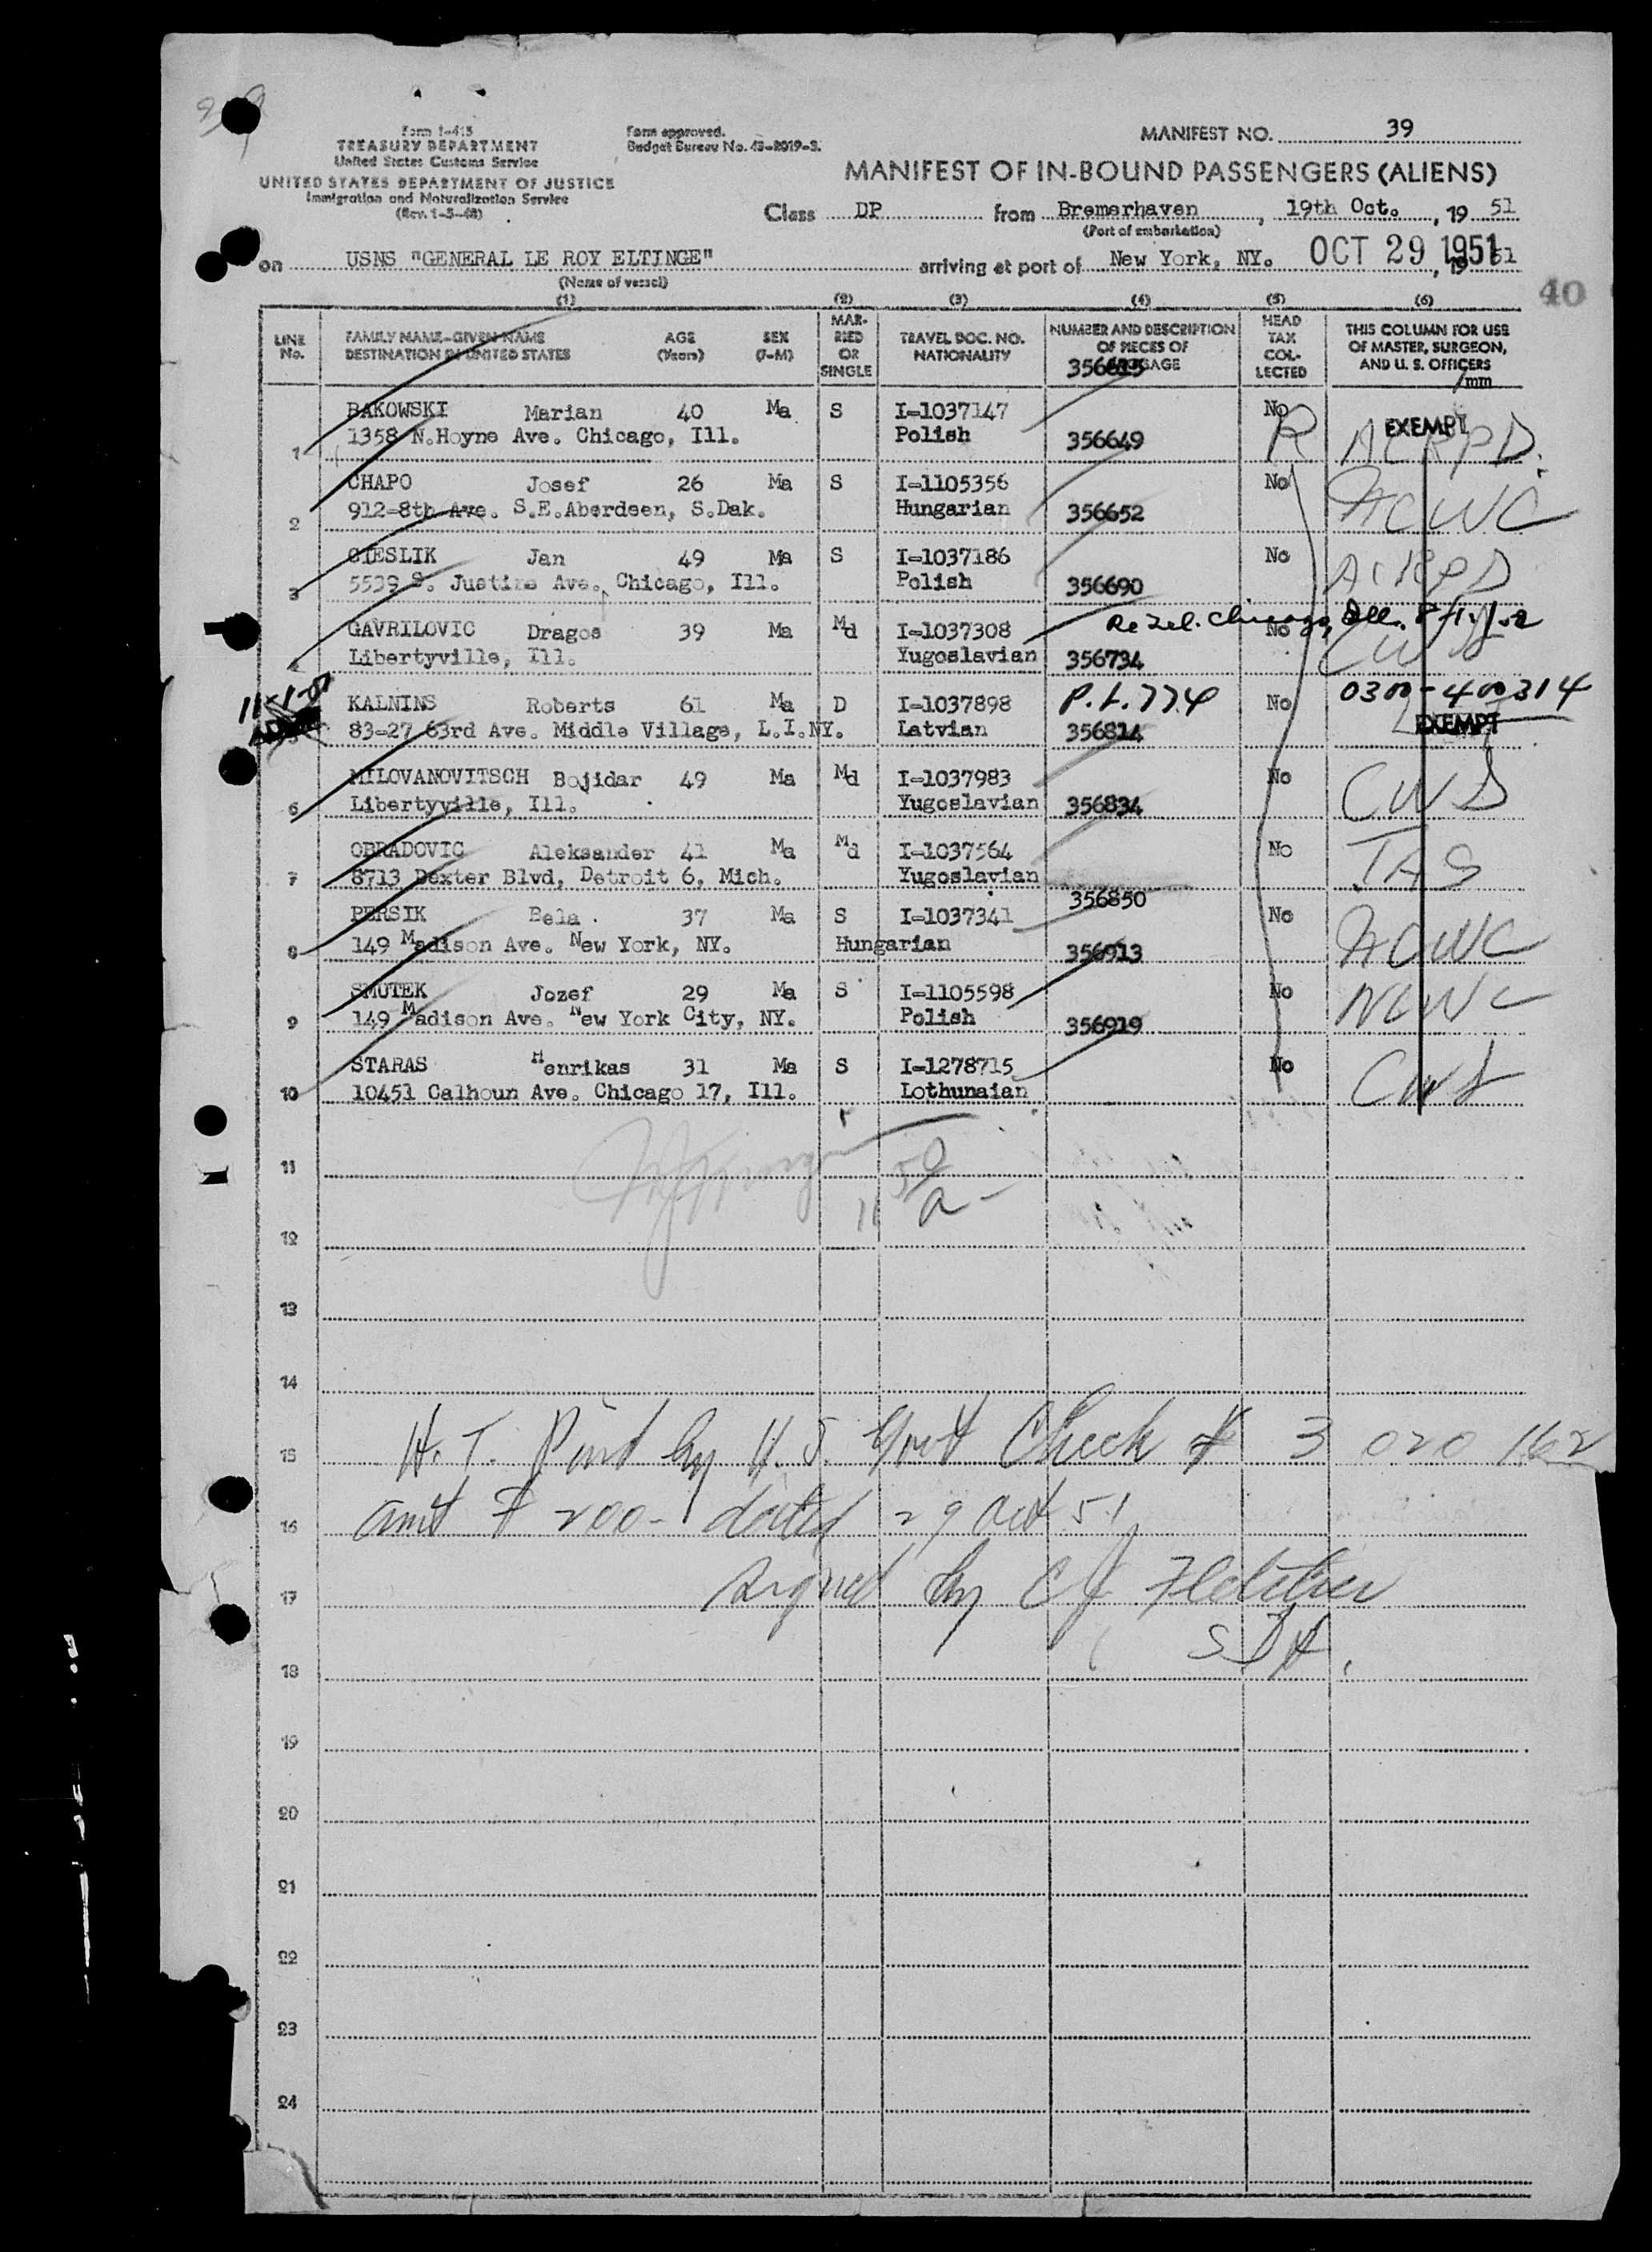 39
Form I-415
TREASURY DEPARTMENT
United States Customs Service
UNITED STATES DEPARTMENT OF JUSTICE
Immigration and Naturalization Service
(Rev. 1-5-48)
Form approved.
Budget Bureau No. 43-R019-3.
MANIFEST NO. 39
MANIFEST OF IN-BOUND PASSENGERS (ALIENS)
Class DP from Bremerhaven, 19th Oct., 19 51
(Port of embarkation)
on USNS "GENERAL LE ROY ELTINGE" arriving at port of New York, NY. OCT 29 1951, 19 51
(Name of vessel)
40
(1) (2) (3) (4) (5) (6)
LINE No. FAMILY NAME-GIVEN NAME DESTINATION IN UNITED STATES AGE (Years) SEX (F-M) MARRIED OR SINGLE TRAVEL DOC. NO. NATIONALITY NUMBER AND DESCRIPTION OF PIECES OF BAGGAGE HEAD TAX COLLECTED THIS COLUMN FOR USE OF MASTER, SURGEON, AND U. S. OFFICERS
/mm
BAKOWSKI Marian 40 Ma S I-1037147 No EXEMPT
1 1358 N.Hoyne Ave. Chicago, Ill. Polish 356649 R
CHAPO Josef 26 Ma S I-1105356 No
2 912-8th Ave. S.E.Aberdeen, S.Dak. Hungarian 356652 ACWC
CIESLIK Jan 49 Ma S I-1037186 No
3 5539 S. Justine Ave. Chicago, Ill. Polish 356690
GAVRILOVIC Dragos 39 Ma Md I-1037308 No
4 Libertyville, Ill. Yugoslavian 356734 CWS
KALNINS Roberts 61 Ma D I-1037898 P.L.774 No 0300-400314
5 83-27 63rd Ave. Middle Village, L.I.NY. Latvian 356814 EXEMPT
MILOVANOVITSCH Bojidar 49 Ma Md I-1037983 No
6 Libertyville, Ill. Yugoslavian 356834 CWS
OBRADOVIC Aleksander 41 Ma Md I-1037564 No TAS
7 8713 Dexter Blvd, Detroit 6, Mich. Yugoslavian
356850
PERSIK Bela. 37 Ma S I-1037341 No
8 149 Madison Ave. New York, NY. Hungarian 356913 ACWC
SMUTEK Jozef 29 Ma S I-1105598 No NCWC
9 149 Madison Ave. New York City, NY. Polish 356919
STARAS Henrikas 31 Ma S I-1278715 No
10 10451 Calhoun Ave. Chicago 17, Ill. Lothunaian CWS
11
12
13
14
15 H. T. Paid by U. S. Govt Check # 3 020 162
16 amt $ 200- dated 29 Oct 51
17 signed by CJ Fletcher
18
19
20
21
22
23
24